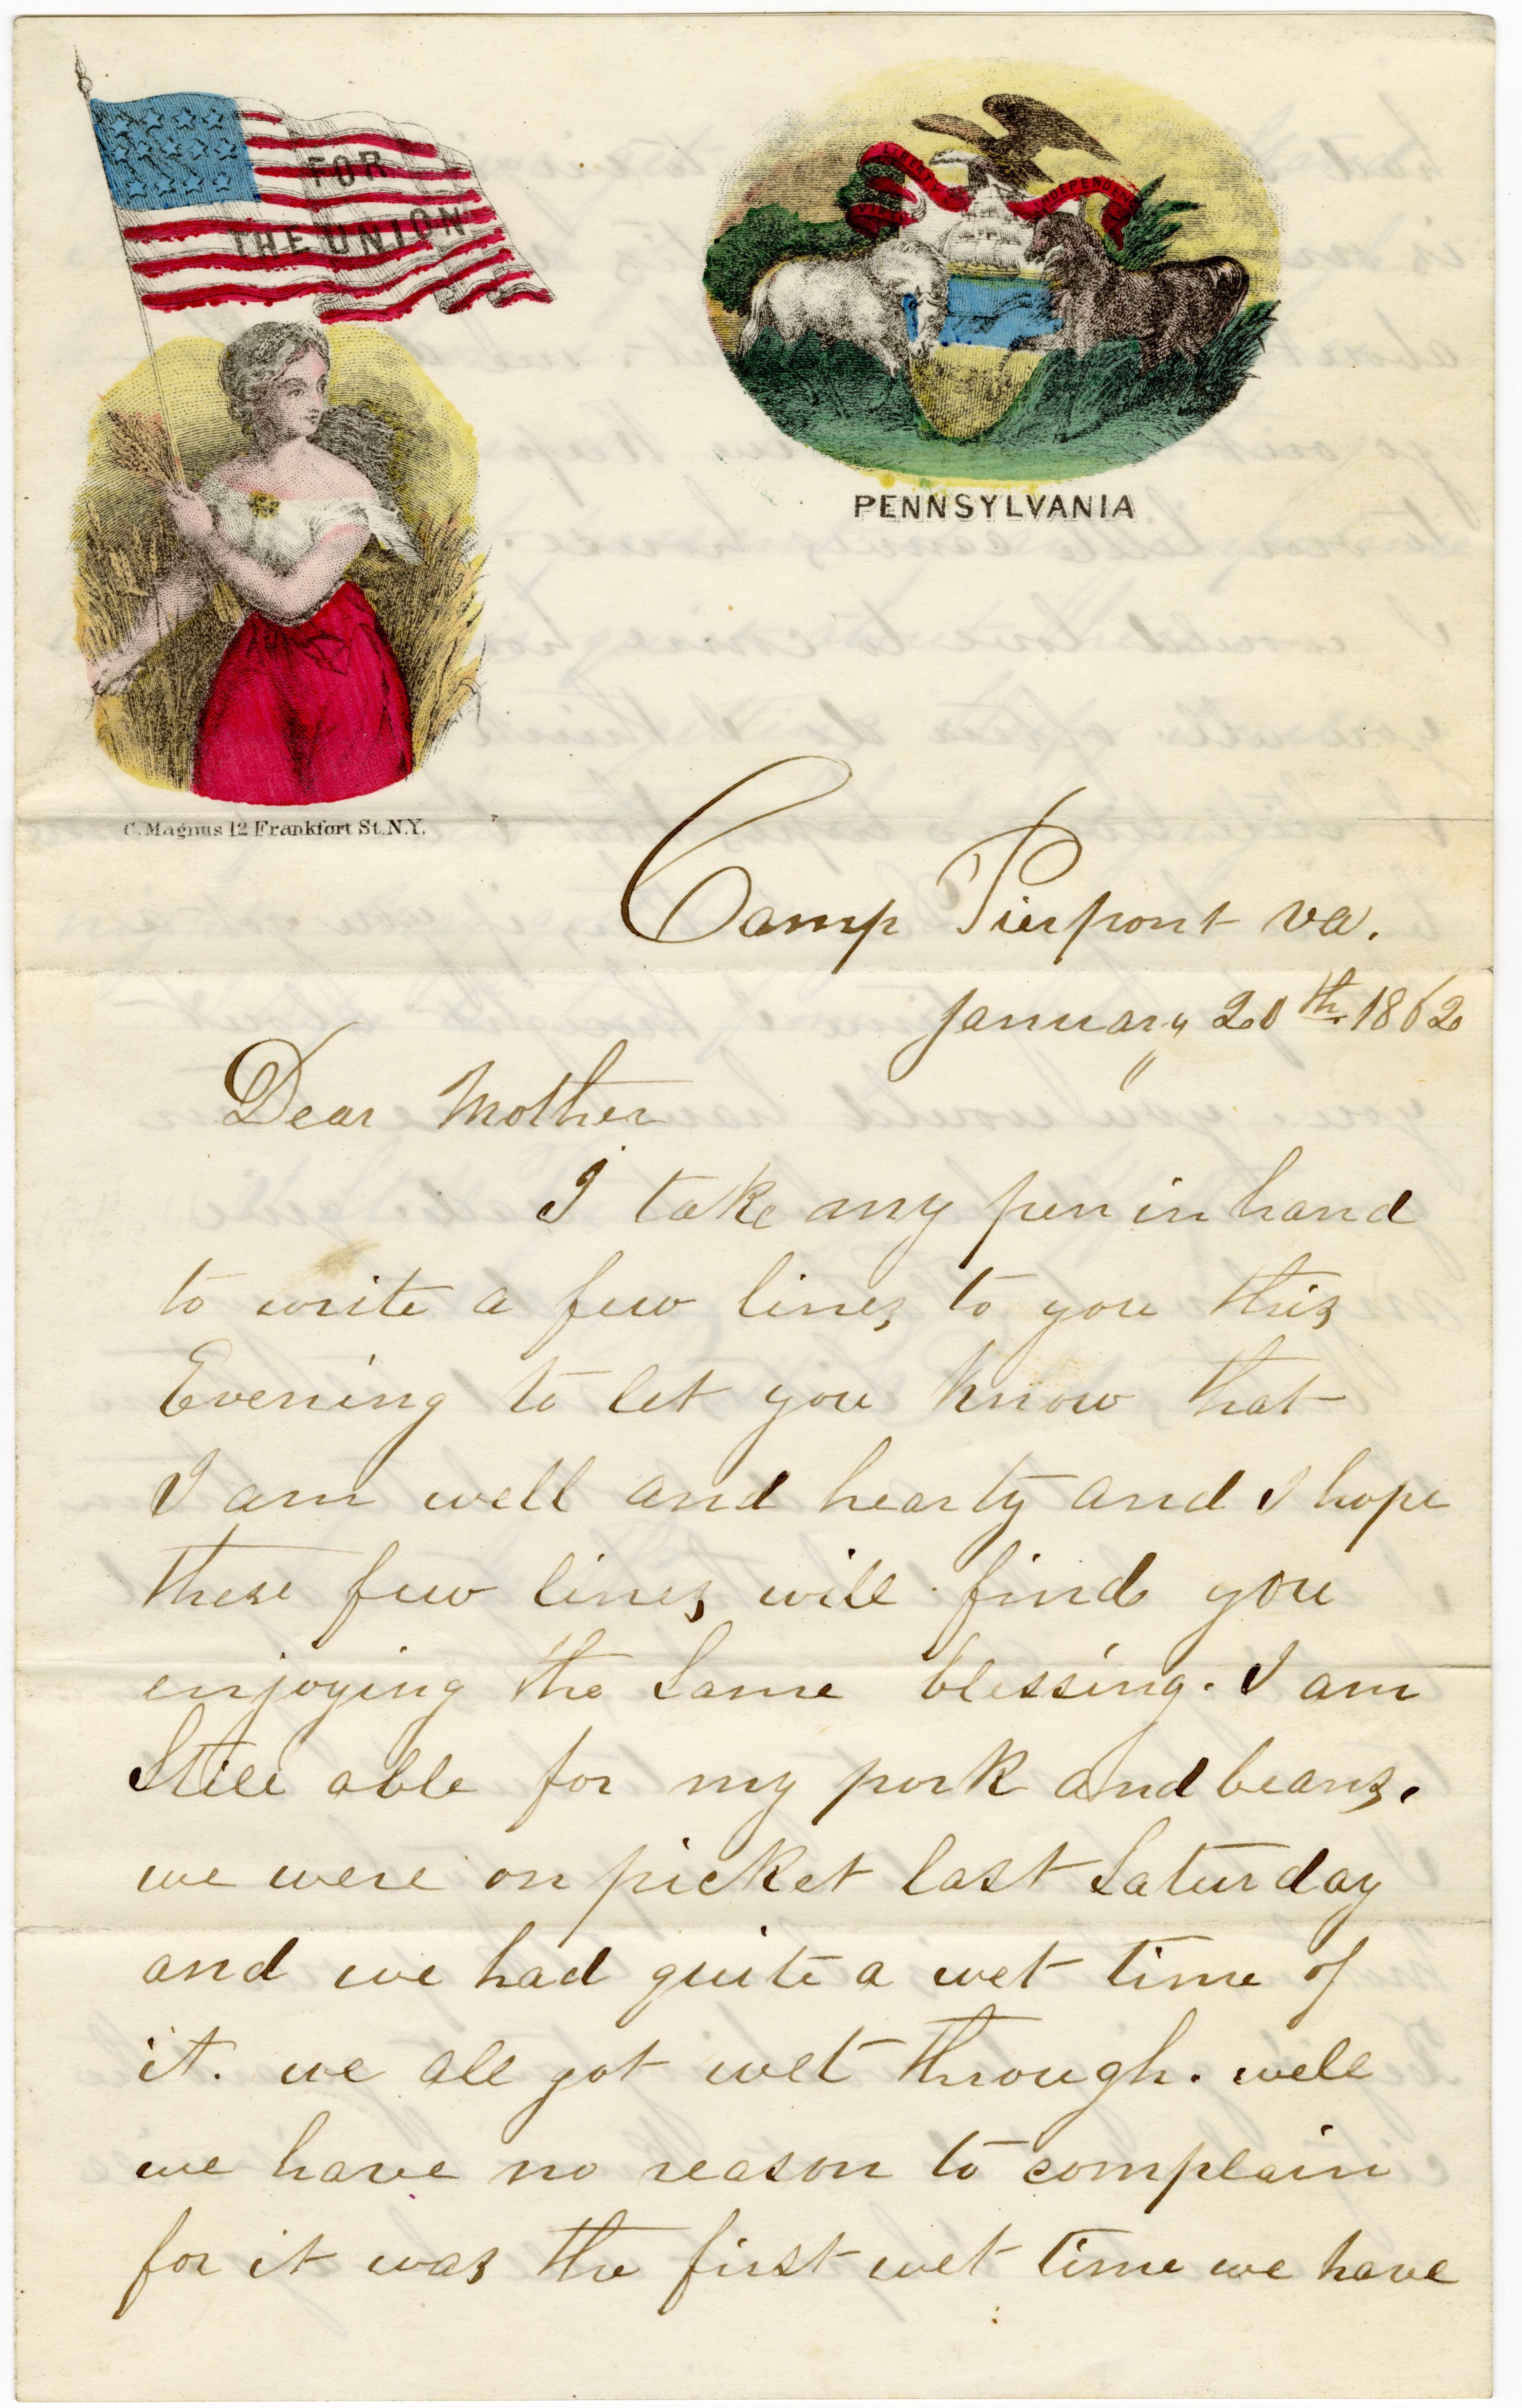 FOR
THE UNION
LIBERTY
INDEPENDENCE
VIRTUE
PENNSYLVANIA
C. Magnus 12 Frankfort St. N.Y.
Camp Pierpont va.
January 20th. 1862
"
Dear Mother
I take my pen in hand
to write a few lines to you this
Evening to let you know that
I am well and hearty and I hope
these few lines will find you
enjoying the same blessing. I am
Still able for my pork and beans.
we were on picket last Saturday
and we had quite a wet time of
it. we all got wet through. well
we have no reason to complain
for it was the first wet time we have